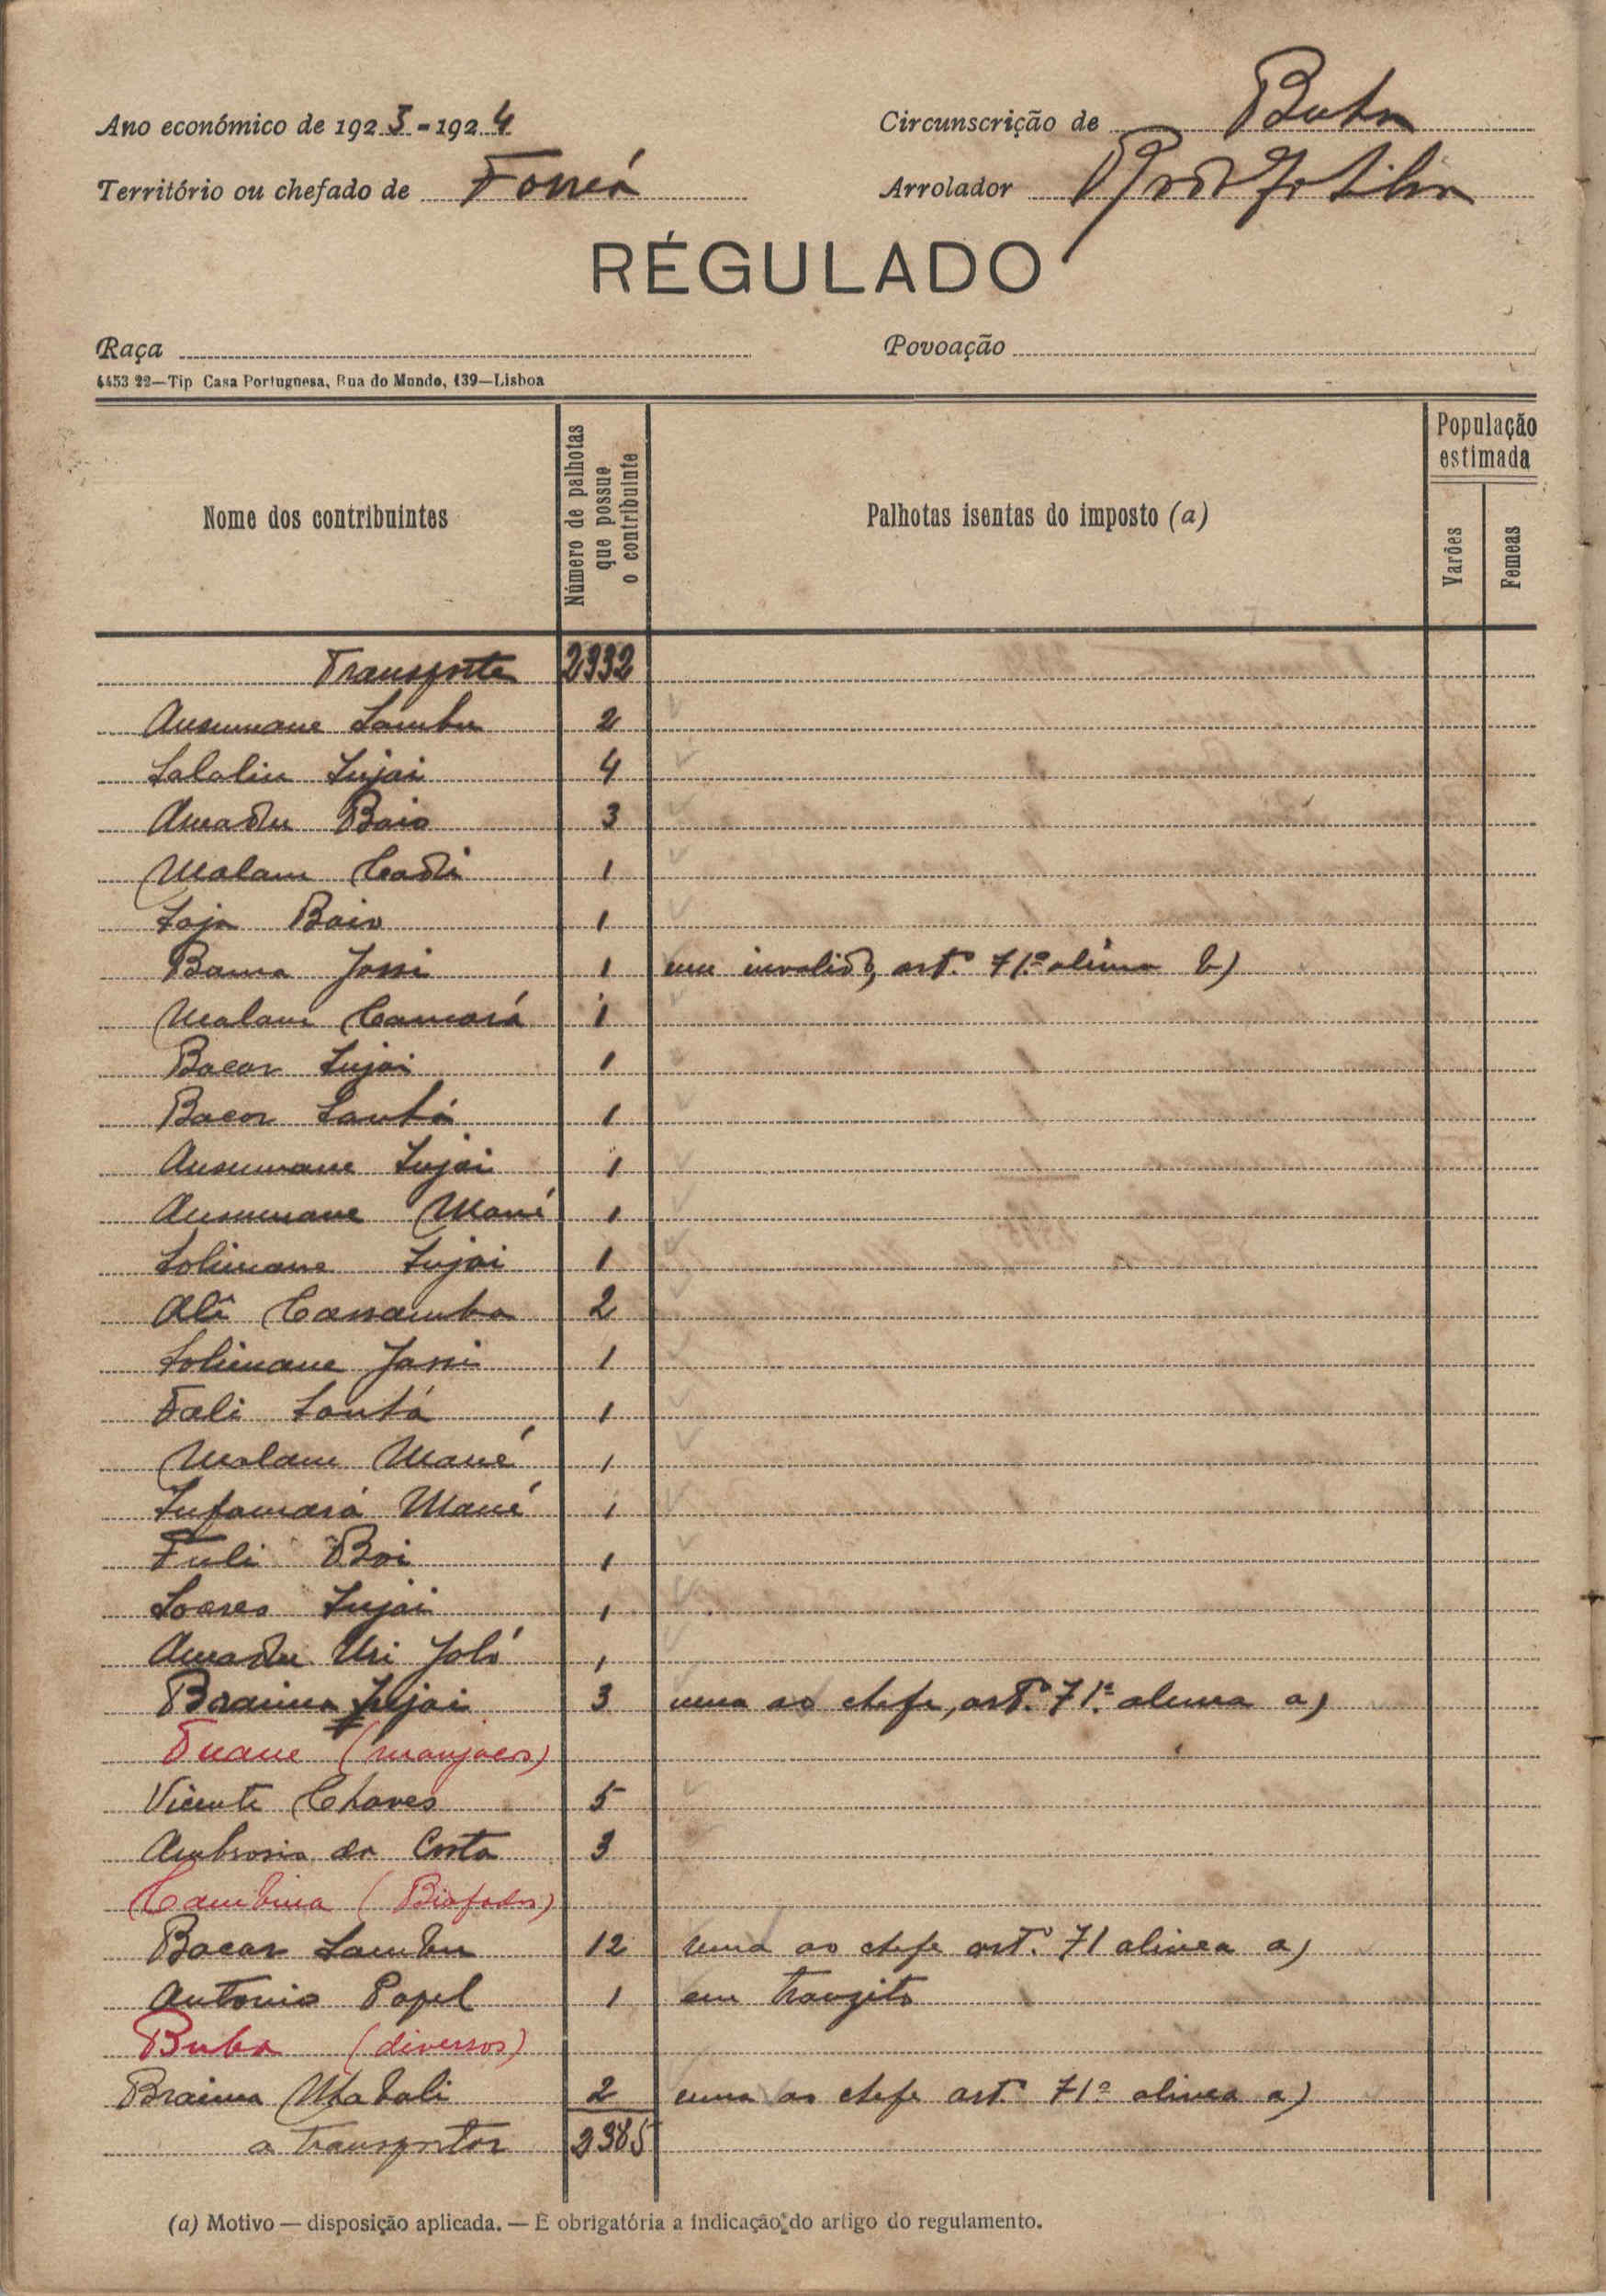 Ano económico de 1923-1924
Circunscrição de Buba
Território ou chefado de Forreá
Arrolador
RÉGULADO
Raça
Povoação
4453 22—Tip Casa Portuguesa, Rua do Mundo, 139—Lisboa
Nome dos contribuintes
Número de palhotas que possue o contribuinte
Palhotas isentas do imposto (a)
População estimada
Varões
Femeas
Transporte 2332
Ansumane Sambu 2
Salaliu Injai 4
Amadu Baio 3
Malam Cadi 1
Baio 1
Bama Jassi 1 um invalido, art.º 71.º alinea b)
Malam Camará 1
Bacar Injai 1
Bacar Santá 1
Ansumane Injai 1
Ansumane Mané 1
Solimane Injai 1
Ali Cassamba 2
Solimane Jassi 1
Fali Santá 1
Malam Mané 1
Infamará Mané 1
Fuli Boi 1
Soares Injai 1
Amadu Uri Jaló 1
Braima Injai 3 uma ao chefe, art.º 71.º alinea a)
Tuane (manjacos)
Vicente Chaves 5
Ambrosio da Costa 3
Cambina (Biafadas)
Bacar Sambu 12 uma ao chefe art.º 71 alinea a)
Antonio Papel 1 em tranzito
Buba (diversos)
Braima 2 uma ao chefe art.º 71º alinea a)
a transportar 2385
(a) Motivo — disposição aplicada. — É obrigatória a indicação do artigo do regulamento.